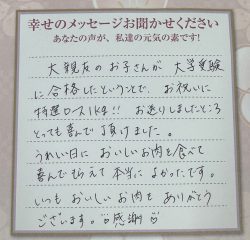 幸せのメッセージお聞かせください
あなたの声が、私達の元気の素です!
大親友のお子さんが 大学受験
に合格したということで、お祝いに
特選ロース1kg!! お送りしましたところ
とっても喜んで頂けました。
うれしい日に おいしいお肉を食べて
喜んでもらえて本当に よかったです。
いつも おいしいお肉を ありがとう
ございます。感謝